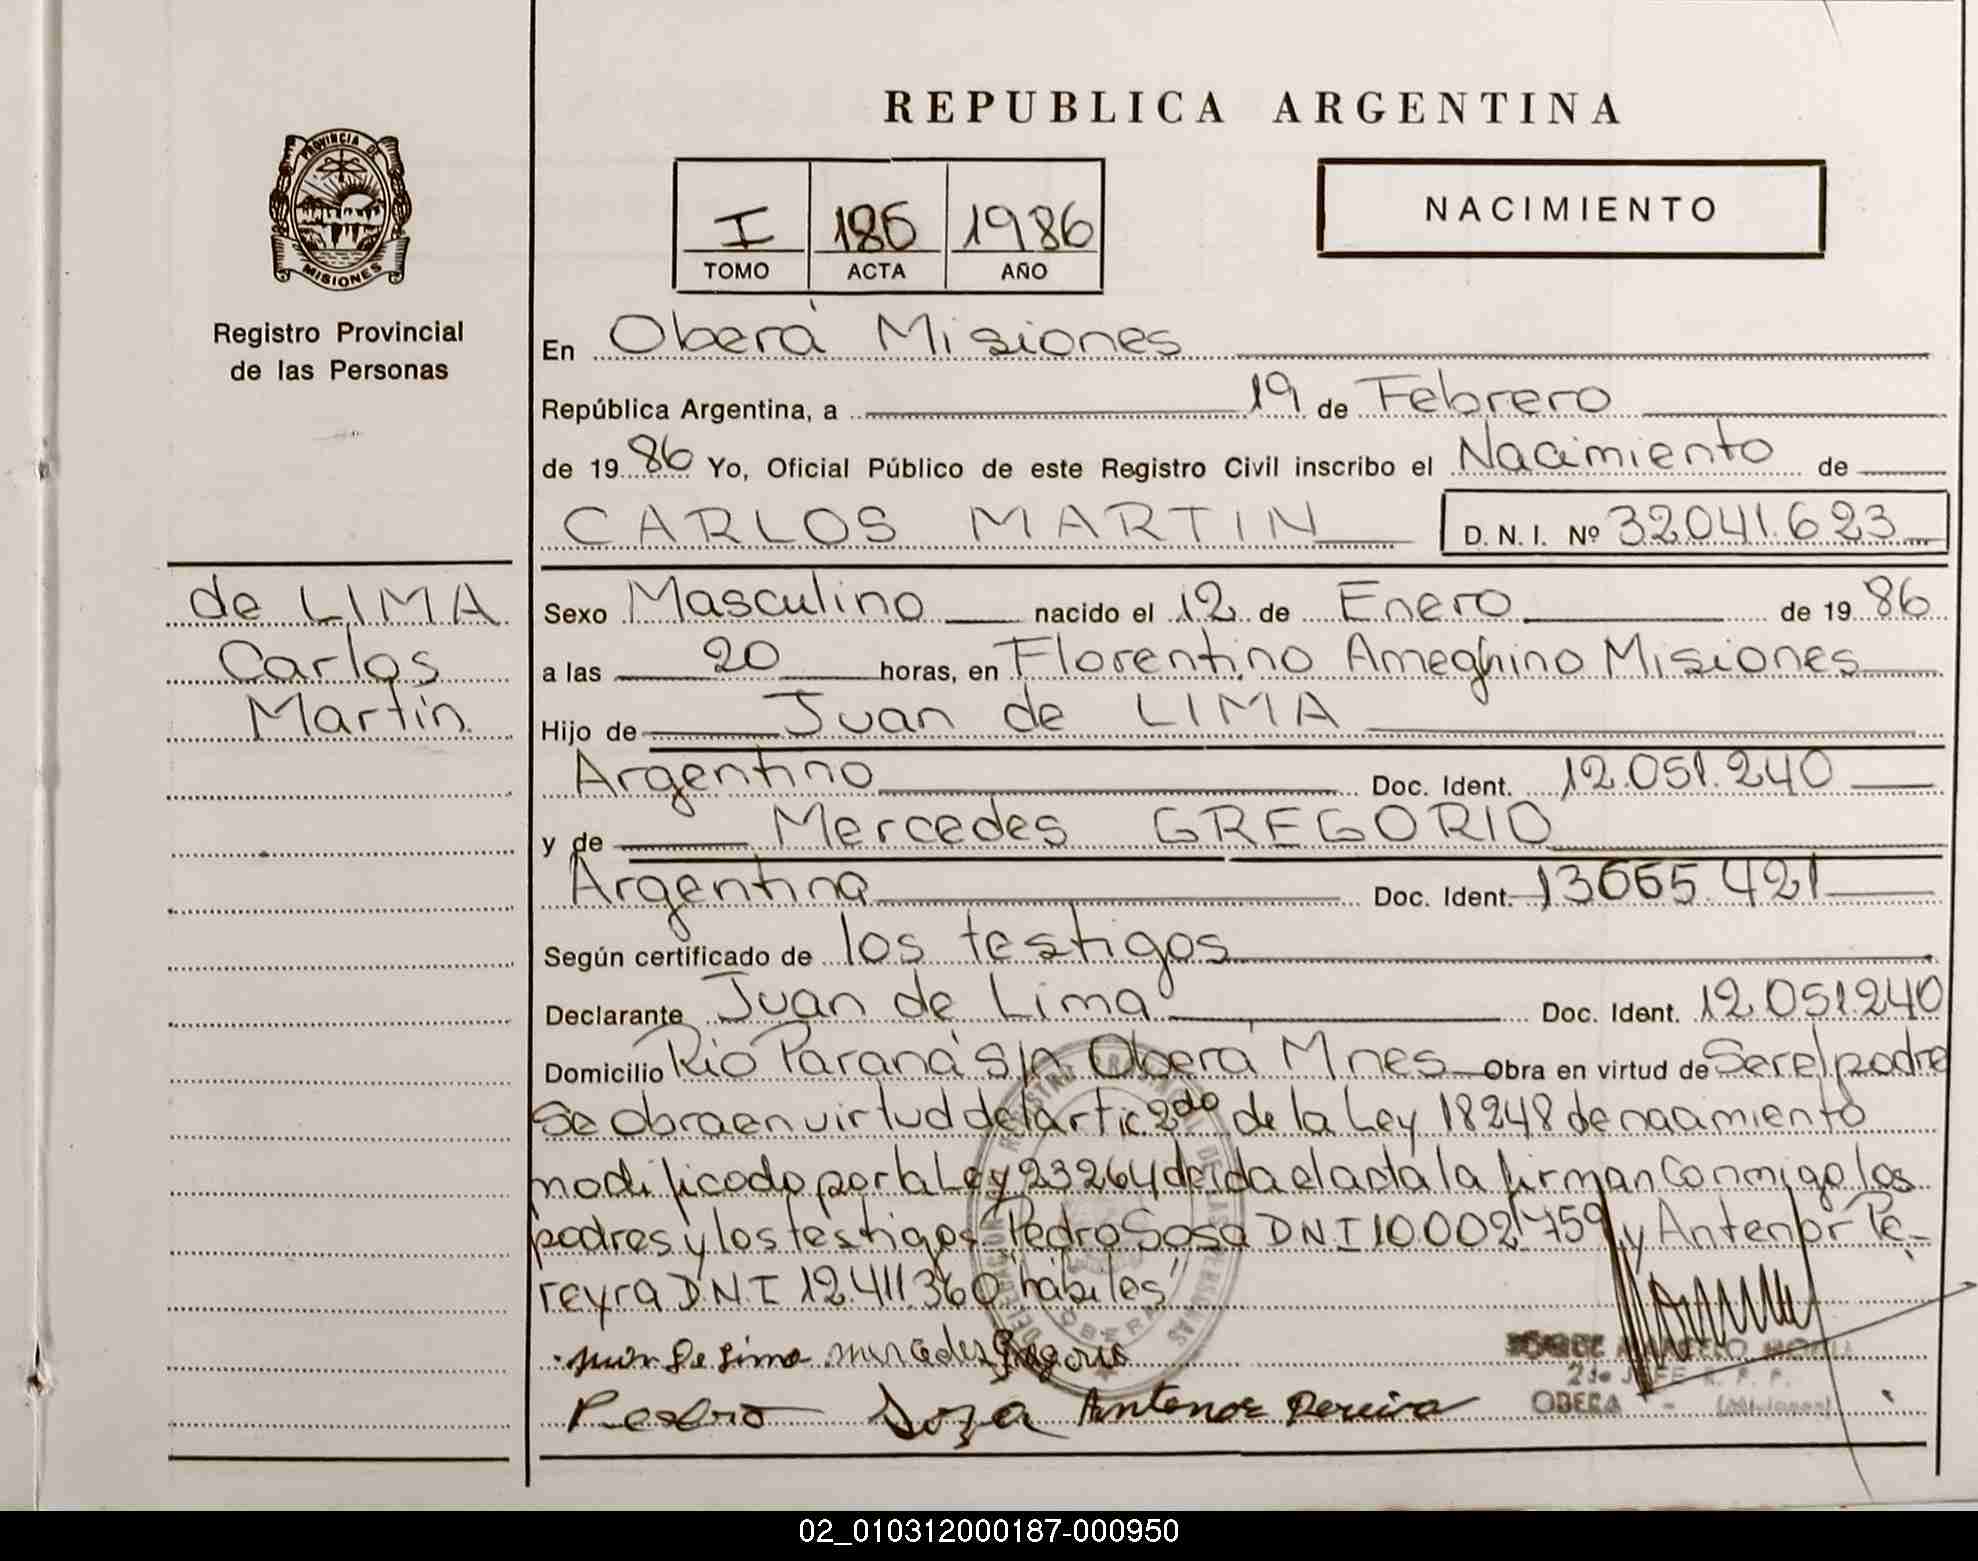 REPUBLICA ARGENTINA
PROVINCIA DE
MISIONES
Registro Provincial
de las Personas
I 186 1986
TOMO ACTA AÑO
NACIMIENTO
En Oberá Misiones
República Argentina, a 19 de Febrero
de 19 86 Yo, Oficial Público de este Registro Civil inscribo el Nacimiento de
CARLOS MARTIN D. N. I. Nº 32041.623
de LIMA
Carlos
Martín.
Sexo Masculino nacido el 12 de Enero de 19 86
a las 20 horas, en Florentino Ameghino Misiones
Hijo de Juan de LIMA
Argentino Doc. Ident. 12.051.240
y de Mercedes GREGORIO
Argentina Doc. Ident. 13665.421
Según certificado de los testigos
Declarante Juan de Lima Doc. Ident. 12.051240
Domicilio Rio Paraná S/n Oberá Mnes Obra en virtud de Ser el padre
Se obra en virtud del artic 2do de la Ley 18248 de nacimiento
modificado por la Ley 23264 leida el acta la firman Conmigo los
padres y los testigos Pedro Sosa DNI 10.002.759 y Antenor Pe-
reyra D.N.I 12.411.360 "hábiles"
Juan de Lima Mercedes Gregorio
Pedro Soza Antenor Pereira
2do JEFE R. P. P.
OBERA - (Misiones)
02_010312000187-000950